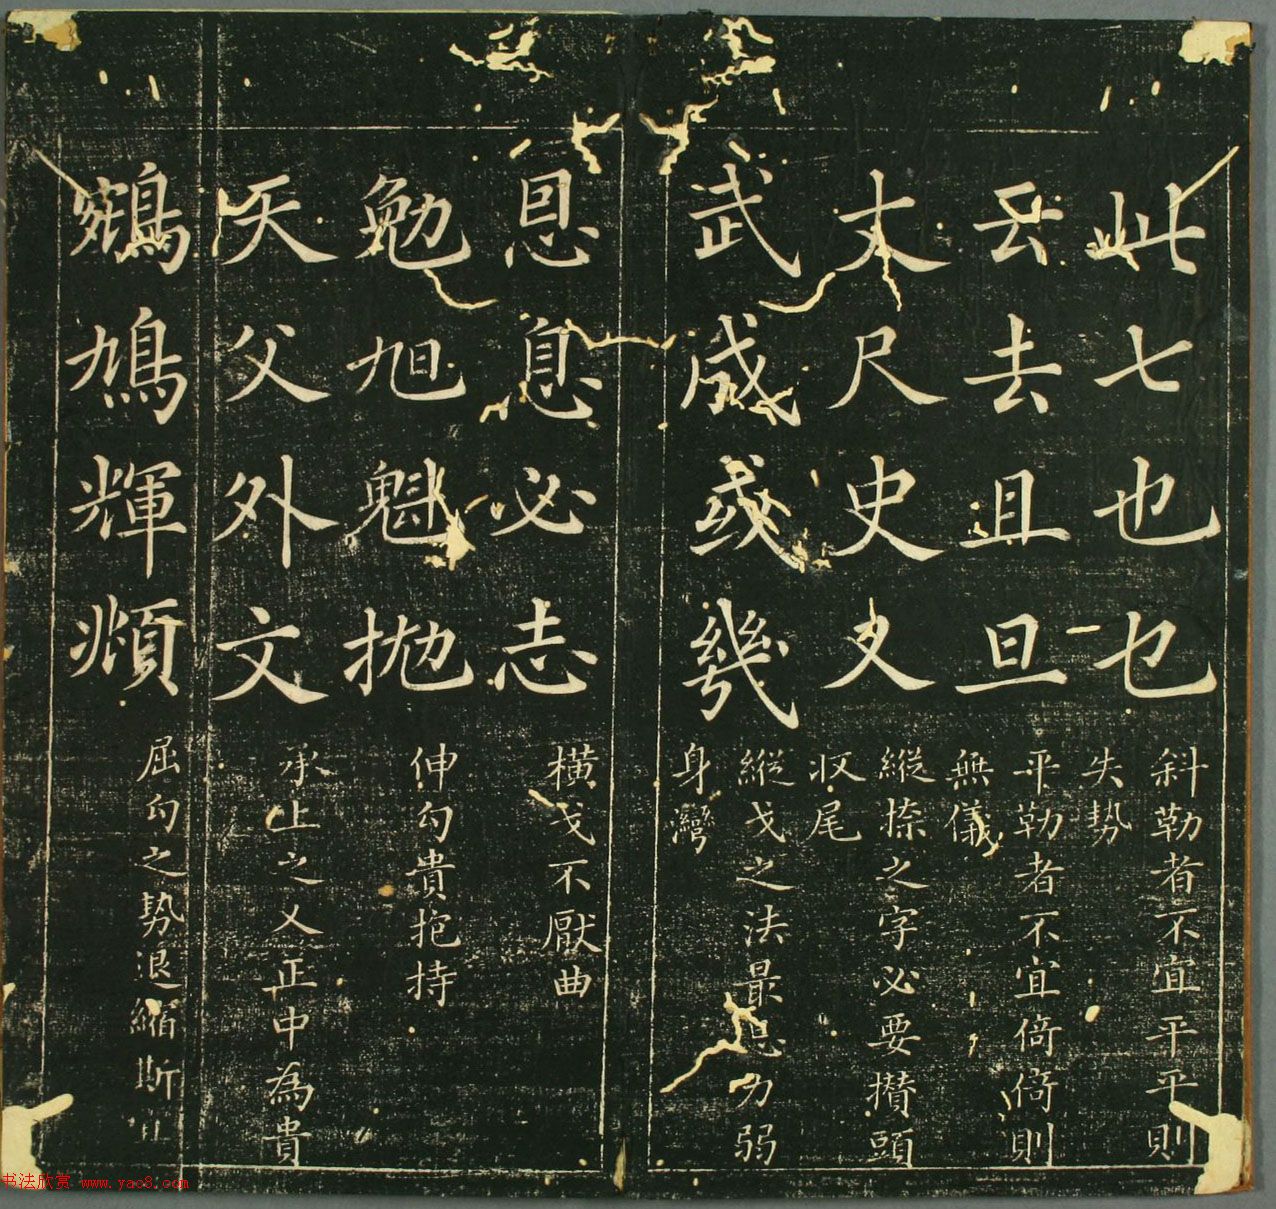 此七也乜 斜勒者不宜平平則失勢
云去且旦 平勒者不宜倚倚則無儀
丈尺史又 縱捺之字必要攢頭収尾
武成或幾 縱戈之法最忌力弱身灣
恩息必志 橫戈不厭曲
勉旭魁拋 伸勾貴抱持
天父外文 承上之乂正中為貴
鵷鳩輝頫 屈勾之勢退縮斯宜
书法欣赏 www.yac8.com